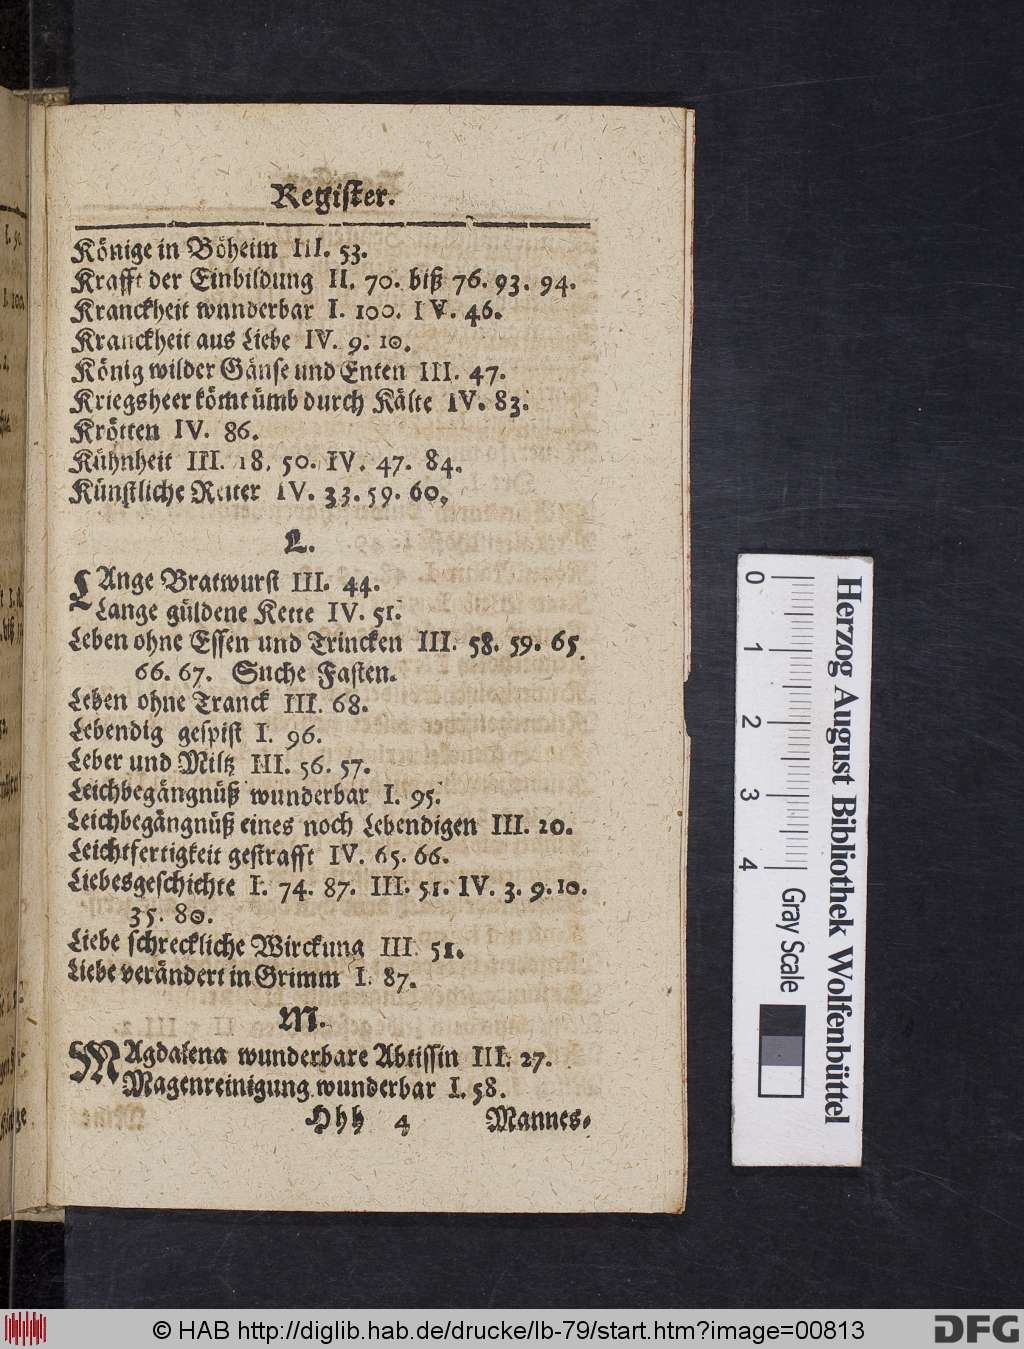 Register.
Könige in Böheim III. 53.
Krafft der Einbildung II. 70. biß 76. 93. 94.
Kranckheit wunderbar I. 100. IV. 46.
Kranckheit aus Liebe IV. 9. 10.
König wilder Gänse und Enten III. 47.
Kriegsheer kömt ümb durch Kälte IV. 83.
Krötten IV. 86.
Kühnheit III. 18. 50. IV. 47. 84.
Künstliche Reiter IV. 33. 59. 60.
L.
LAnge Bratwurst III. 44.
Lange güldene Kette IV. 51.
Leben ohne Essen und Trincken III. 58. 59. 65.
66. 67. Suche Fasten.
Leben ohne Tranck III. 68.
Lebendig gespist I. 96.
Leber und Miltz III. 56. 57.
Leichbegängnüß wunderbar I. 95.
Leichbegängnüß eines noch Lebendigen III. 20.
Leichtfertigkeit gestrafft IV. 65. 66.
Liebesgeschichte I. 74. 87. III. 51. IV. 3. 9. 10.
35. 80.
Liebe schreckliche Wirckung III. 51.
Liebe verändert in Grimm I. 87.
M.
MAgdalena wunderbare Abtissin III. 27.
Magenreinigung wunderbar I. 58.
Hhh 4 Mannes-
0 1 2 3 4 Gray Scale
Herzog August Bibliothek Wolfenbüttel
© HAB http://diglib.hab.de/drucke/lb-79/start.htm?image=00813
DFG